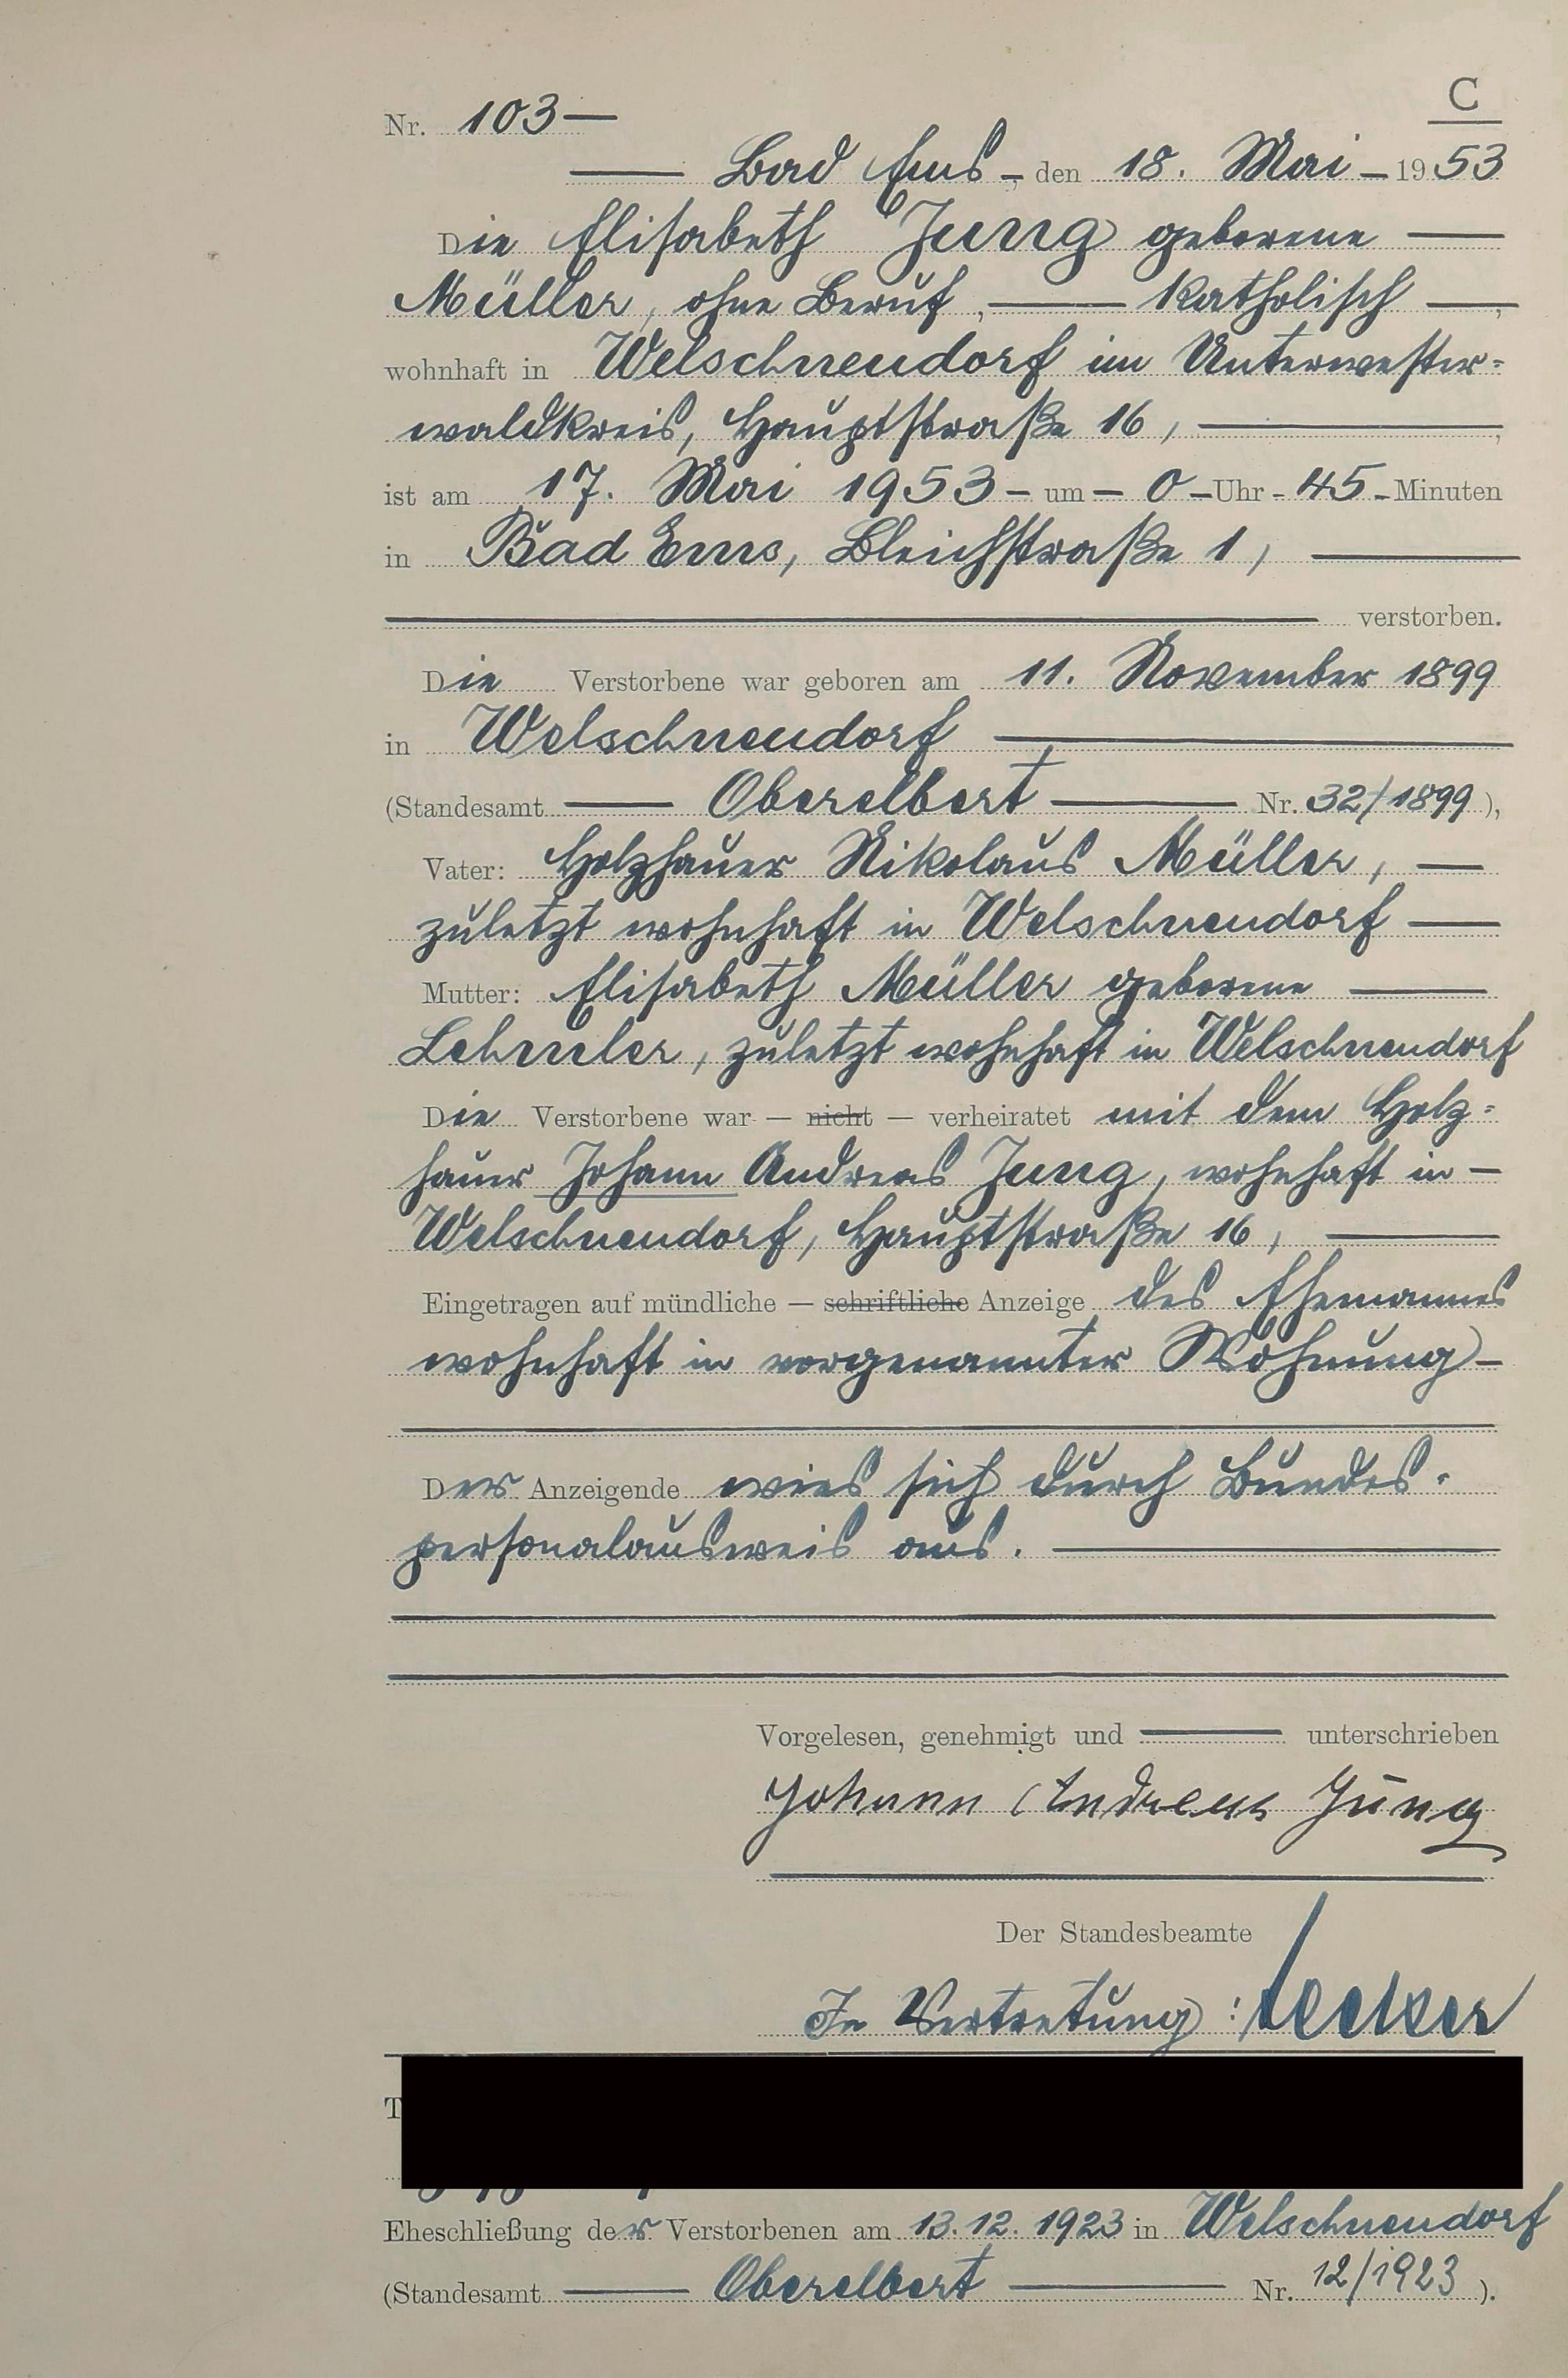 C
Nr. 103 —
— Bad Ems —, den 18. Mai — 1953
Die Elisabeth Jung geborene —
Müller, ohne Beruf, — katholisch —,
wohnhaft in Welschneudorf im Unterwester=
waldkreis, Hauptstraße 16, —,
ist am 17. Mai 1953 — um — 0 — Uhr — 45 — Minuten
in Bad Ems, Bleichstraße 1, —
— verstorben.
Die Verstorbene war geboren am 11. November 1899
in Welschneudorf —
(Standesamt — Oberelbert — Nr. 32/1899),
Vater: Holzhauer Nikolaus Müller, —
zuletzt wohnhaft in Welschneudorf —
Mutter: Elisabeth Müller geborene —
Lehmler, zuletzt wohnhaft in Welschneudorf
Die Verstorbene war — nicht — verheiratet mit dem Holz=
hauer Johann Andreas Jung, wohnhaft in —
Welschneudorf, Hauptstraße 16, —
Eingetragen auf mündliche — schriftliche Anzeige des Ehemannes
wohnhaft in vorgenannter Wohnung —
Der Anzeigende wies sich durch Bundes-
personalausweis aus. —
Vorgelesen, genehmigt und — unterschrieben
Johann Andreas Jung
Der Standesbeamte
In Vertretung:
T
Eheschließung der Verstorbenen am 13.12.1923 in Welschneudorf
(Standesamt — Oberelbert — Nr. 12/1923).